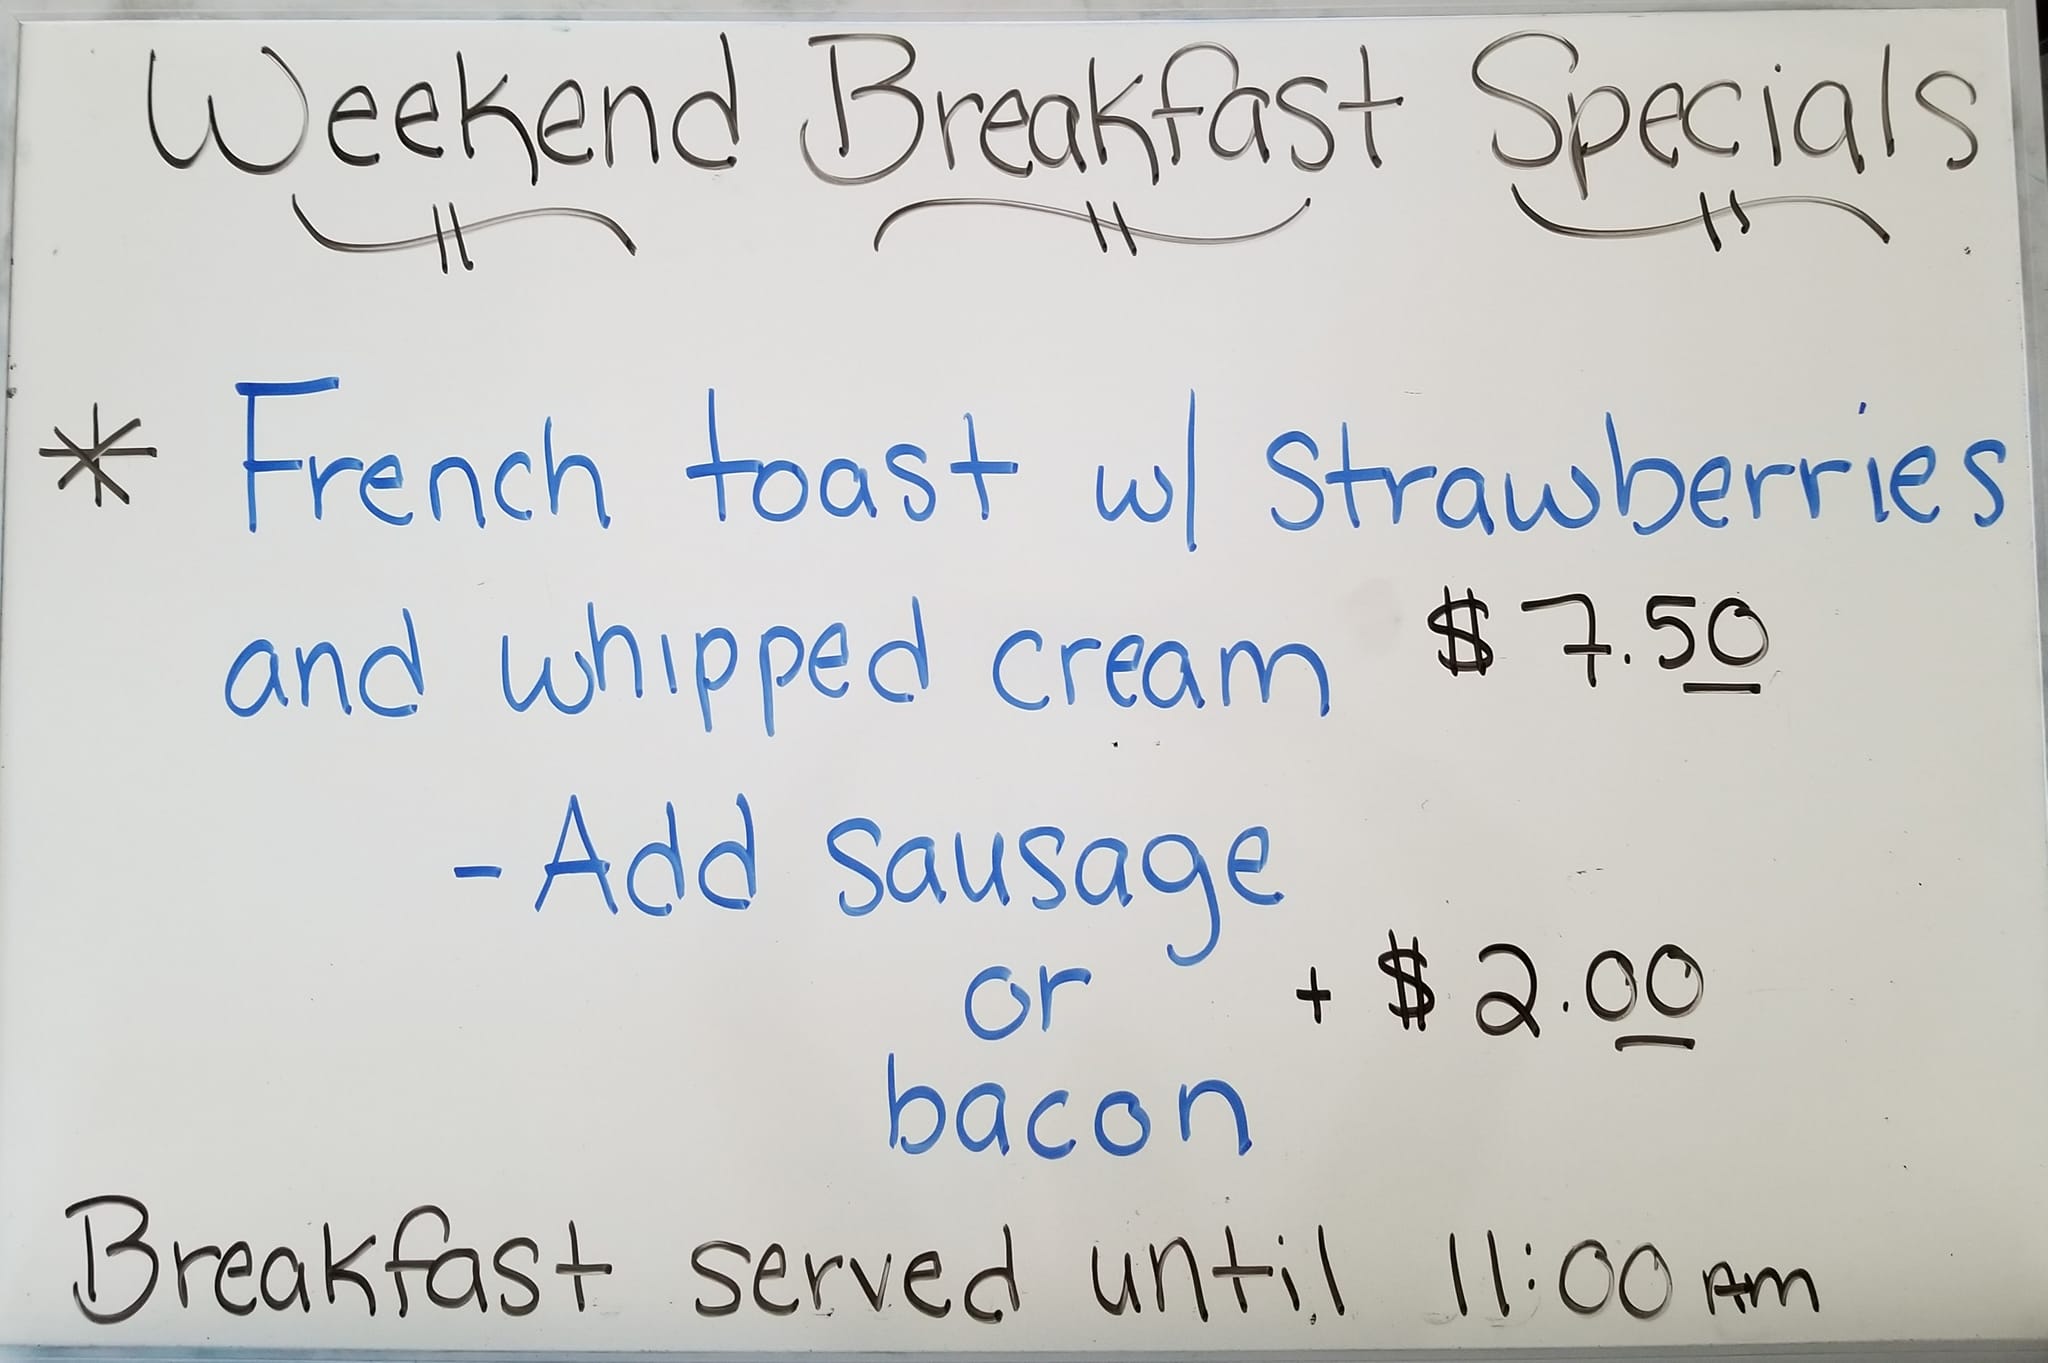 Weekend Breakfast Specials
* French toast w/ strawberries
and whipped cream $7.50
- Add sausage
or + $2.00
bacon
Breakfast served until 11:00 AM